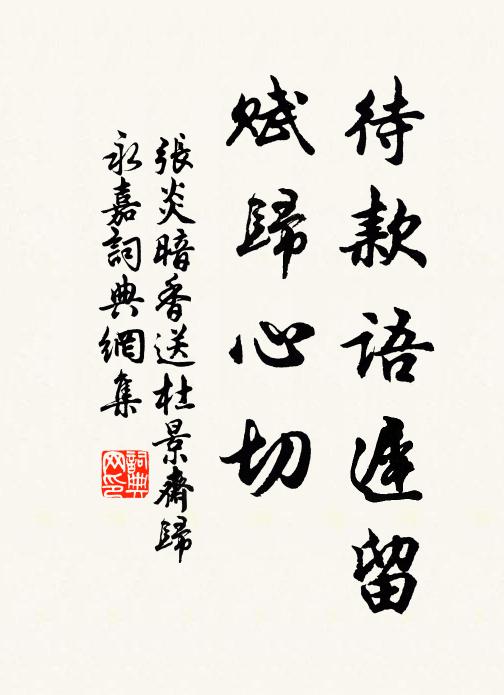 待款語遲留
賦歸心切
張炎暗香送杜景齋歸
永嘉詞典網集
詞典
网印